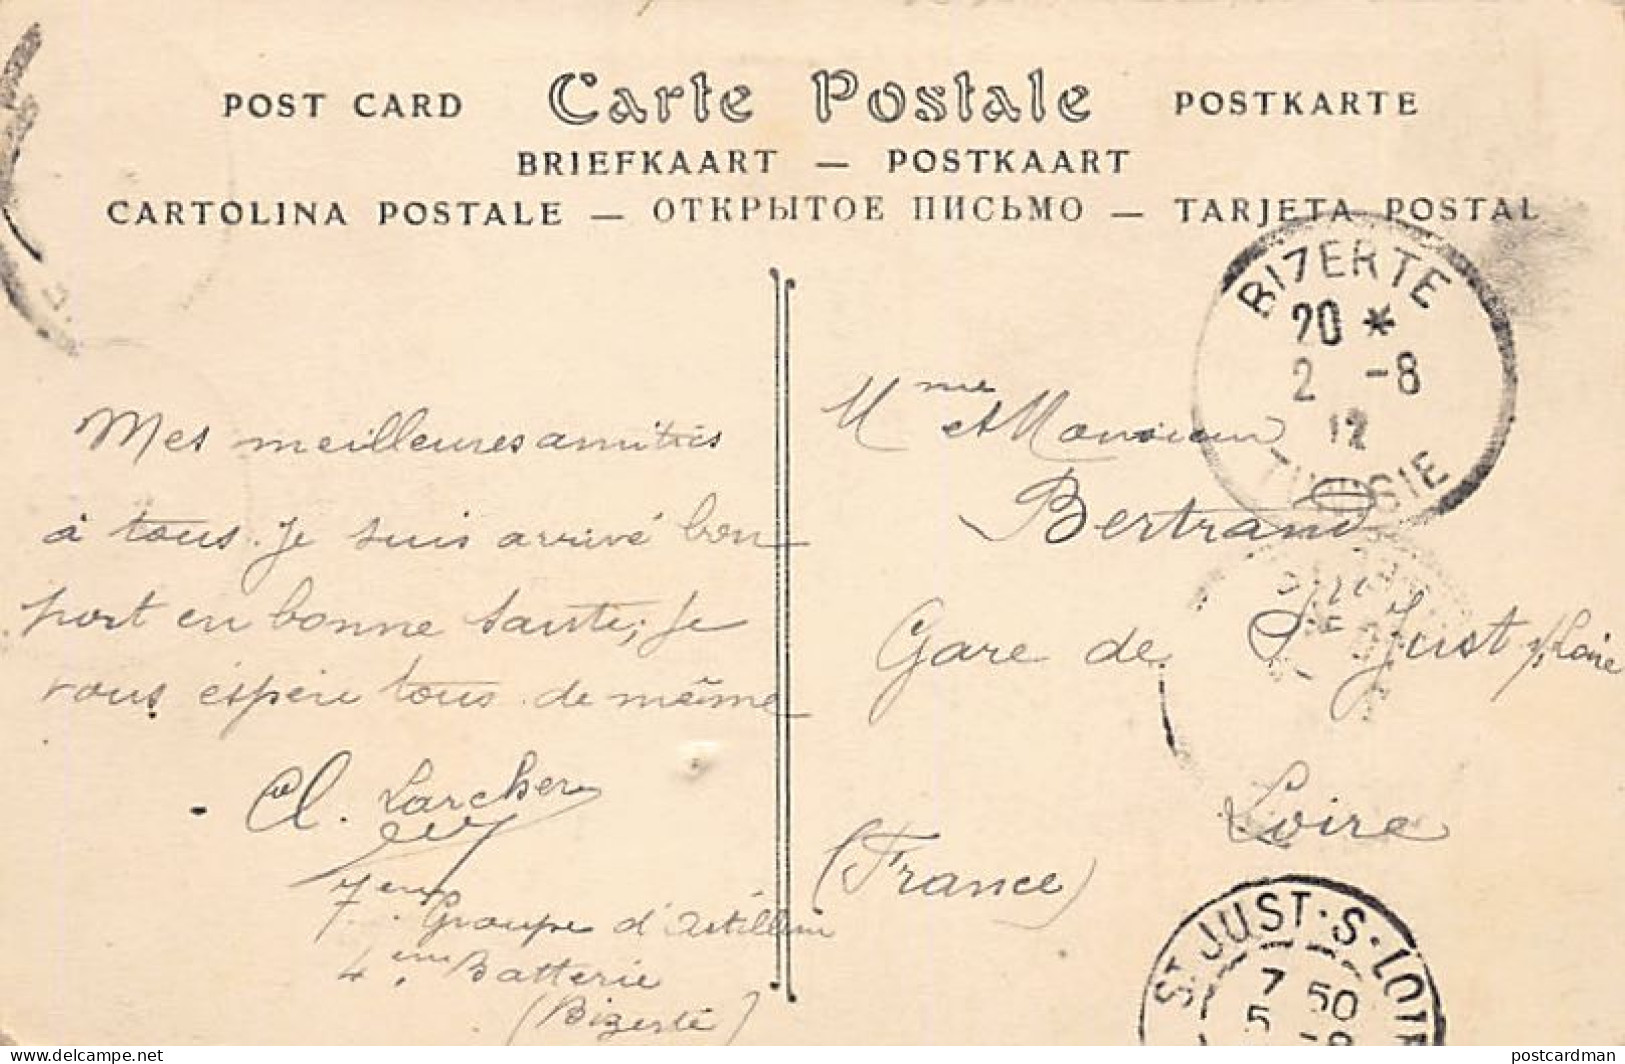 POST CARD Carte Postale POSTKARTE
BRIEFKAART — POSTKAART
CARTOLINA POSTALE — ОТКРЫТОЕ ПИСЬМО — TARJETA POSTAL
BIZERTE
20 *
2 -8
12
TUNISIE
Mes meilleures amitiés
à tous. Je suis arrivé bon
port en bonne santé; Je
vous espère tous de même
Cl. Larcher
7eme Groupe d'Artillerie
4eme Batterie
(Bizerte)
Mme et Monsieur
Bertrand
Gare de St Just s/Loire
Loire
(France)
ST JUST-S-LOIRE
7 50
5 -8
delcampe.net
postcardman